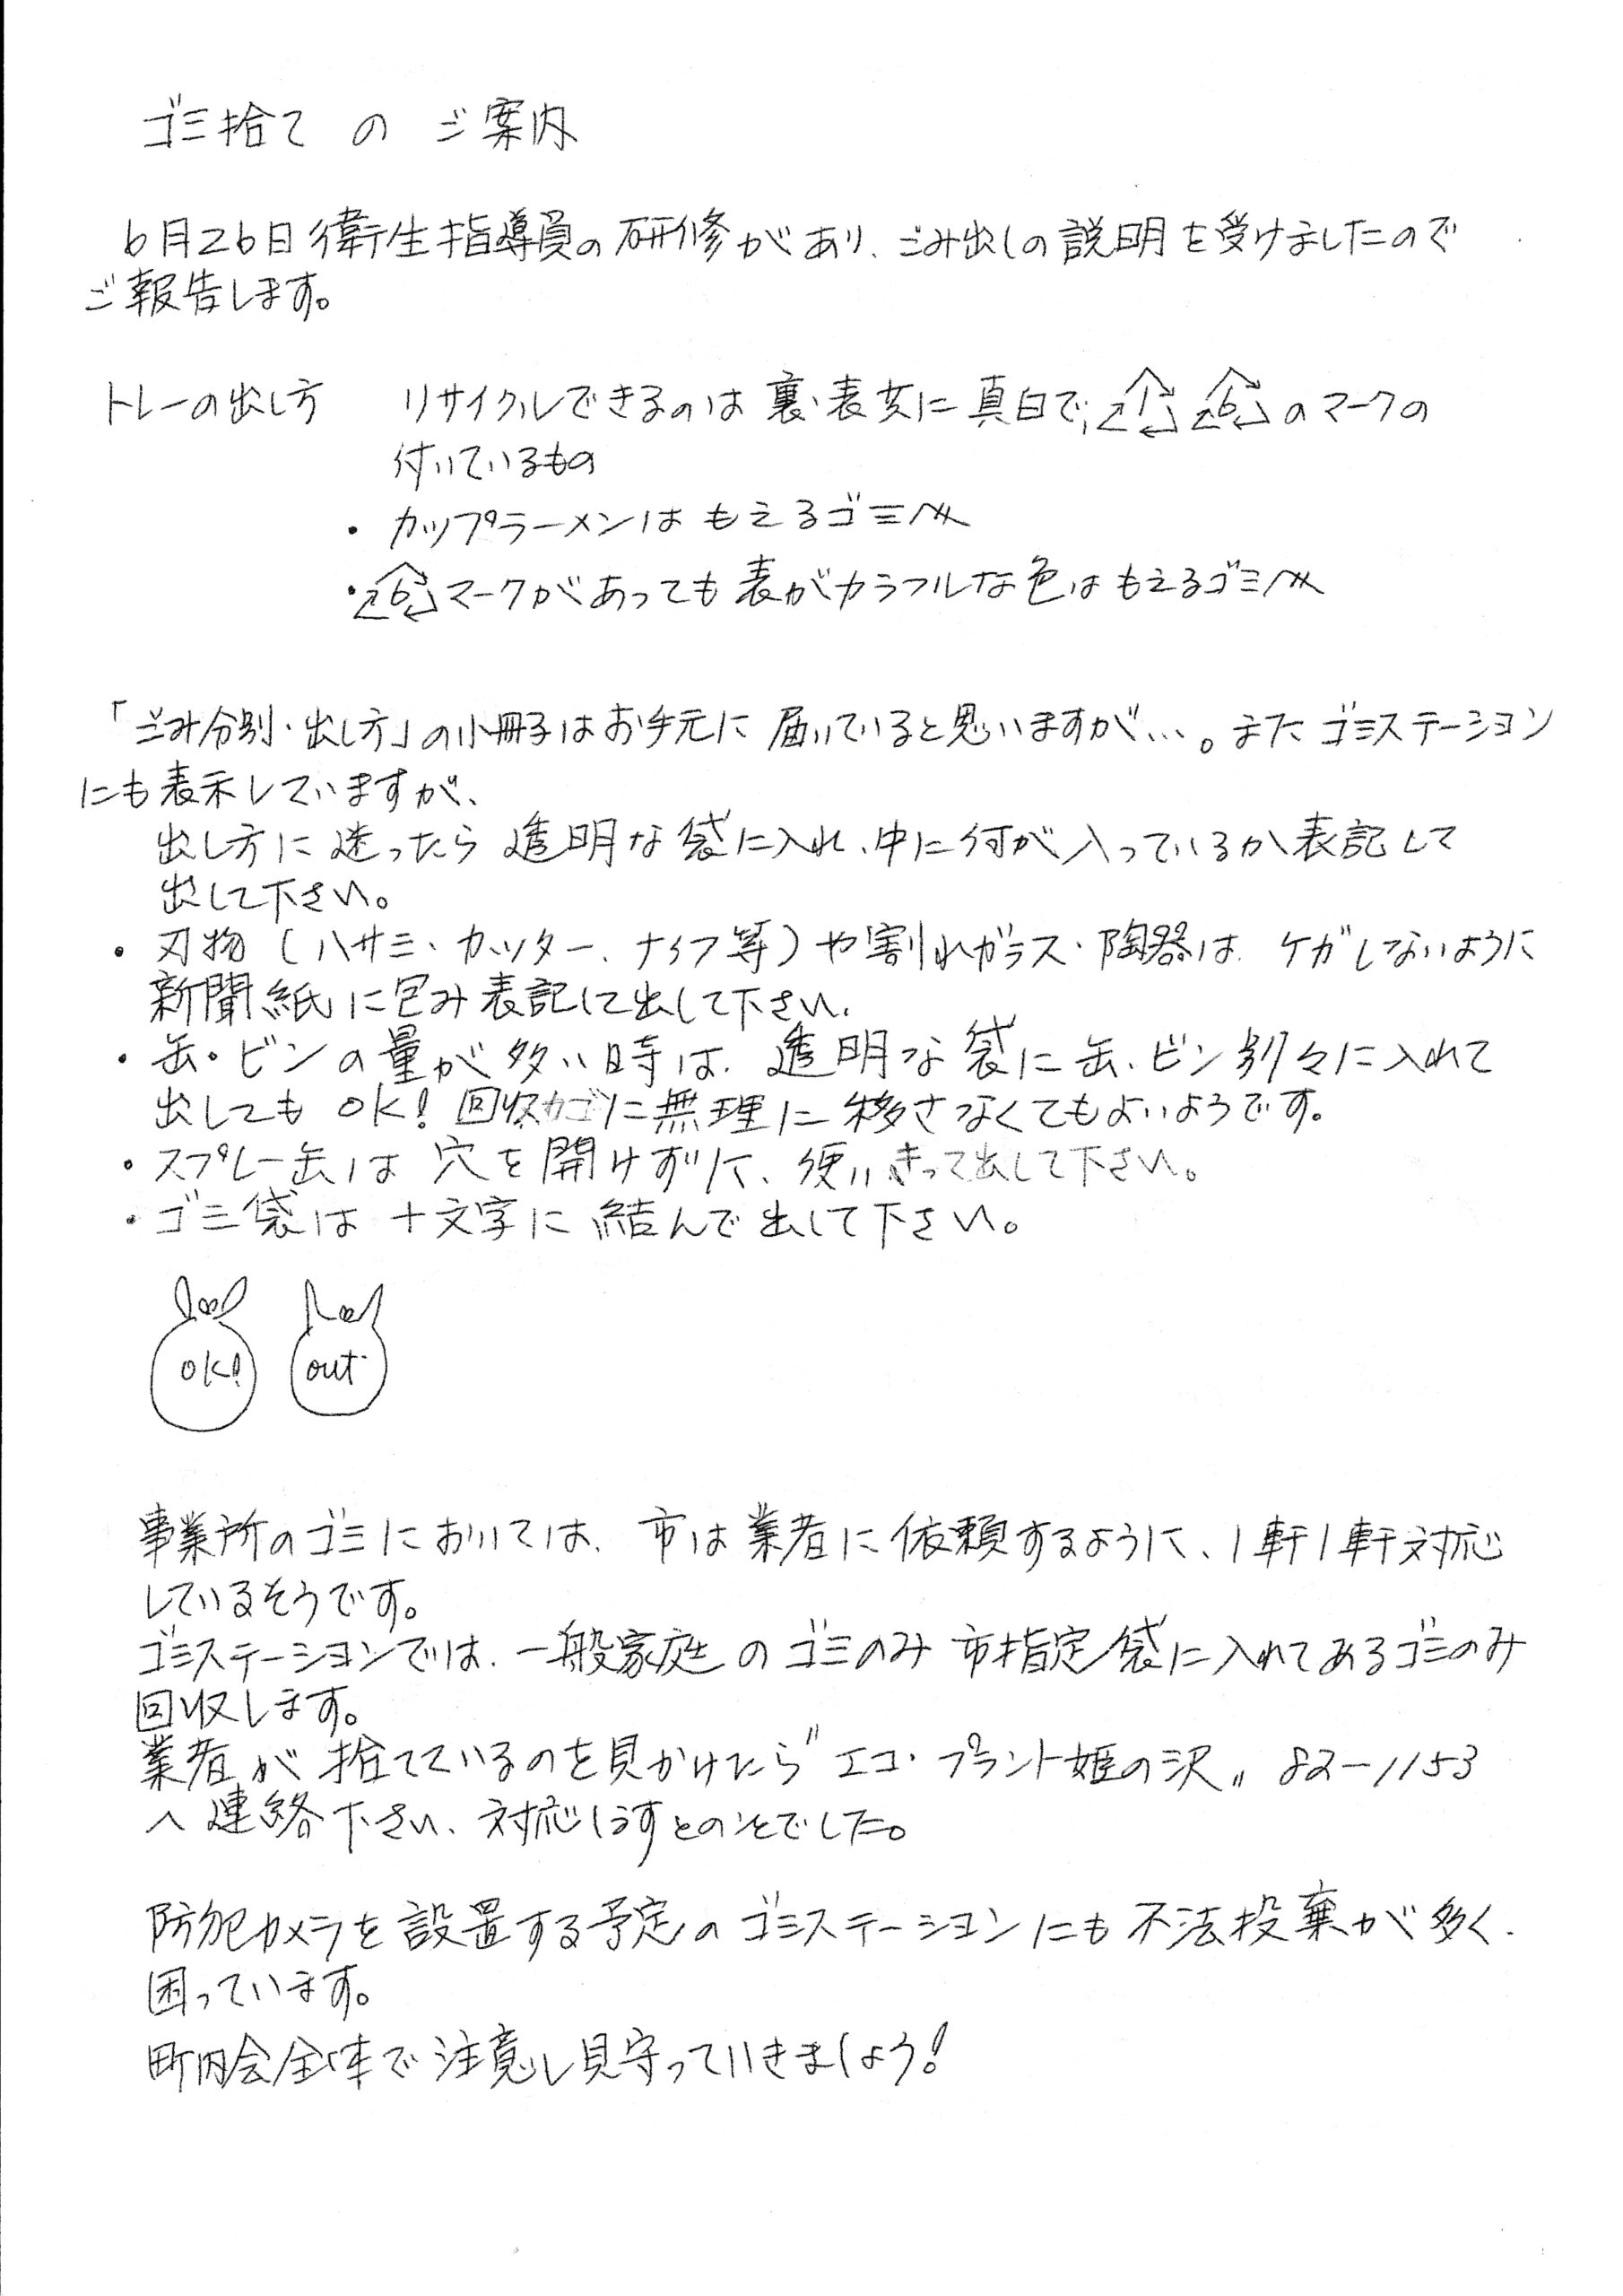 ゴミ捨て の ご案内
6月26日衛生指導員の研修があり、ごみ出しの説明を受けましたので
ご報告します。
トレーの出し方 リサイクルできるのは裏・表共に真白で、1 6 のマークの
付いているもの
・カップラーメンは もえるゴミへ
・6マークがあっても表がカラフルな色はもえるゴミへ
「ごみ分別・出し方」の小冊子はお手元に届いていると思いますが…。またゴミステーション
にも表示していますが、
出し方に迷ったら透明な袋に入れ、中に何が入っているか表記して
出して下さい。
・刃物(ハサミ・カッター、ナイフ等)や割れガラス・陶器は、ケガしないように
新聞紙に包み表記して出して下さい。
・缶・ビンの量が多い時は、透明な袋に缶、ビン別々に入れて
出しても OK! 回収カゴに無理に移さなくてもよいようです。
・スプレー缶は 穴を開けずに、使いきって出して下さい。
・ゴミ袋は十文字に結んで出して下さい。
OK! out
事業所のゴミにおいては、市は業者に依頼するように、1軒1軒対応
しているそうです。
ゴミステーションでは、一般家庭のゴミのみ 市指定袋に入れてあるゴミのみ
回収します。
業者が捨てているのを見かけたら"エコ・プラント姫の沢〃 82-1153
へ連絡下さい、対応しますとのことでした。
防犯カメラを設置する予定のゴミステーションにも不法投棄が多く、
困っています。
町内会全体で注意し見守っていきましょう!